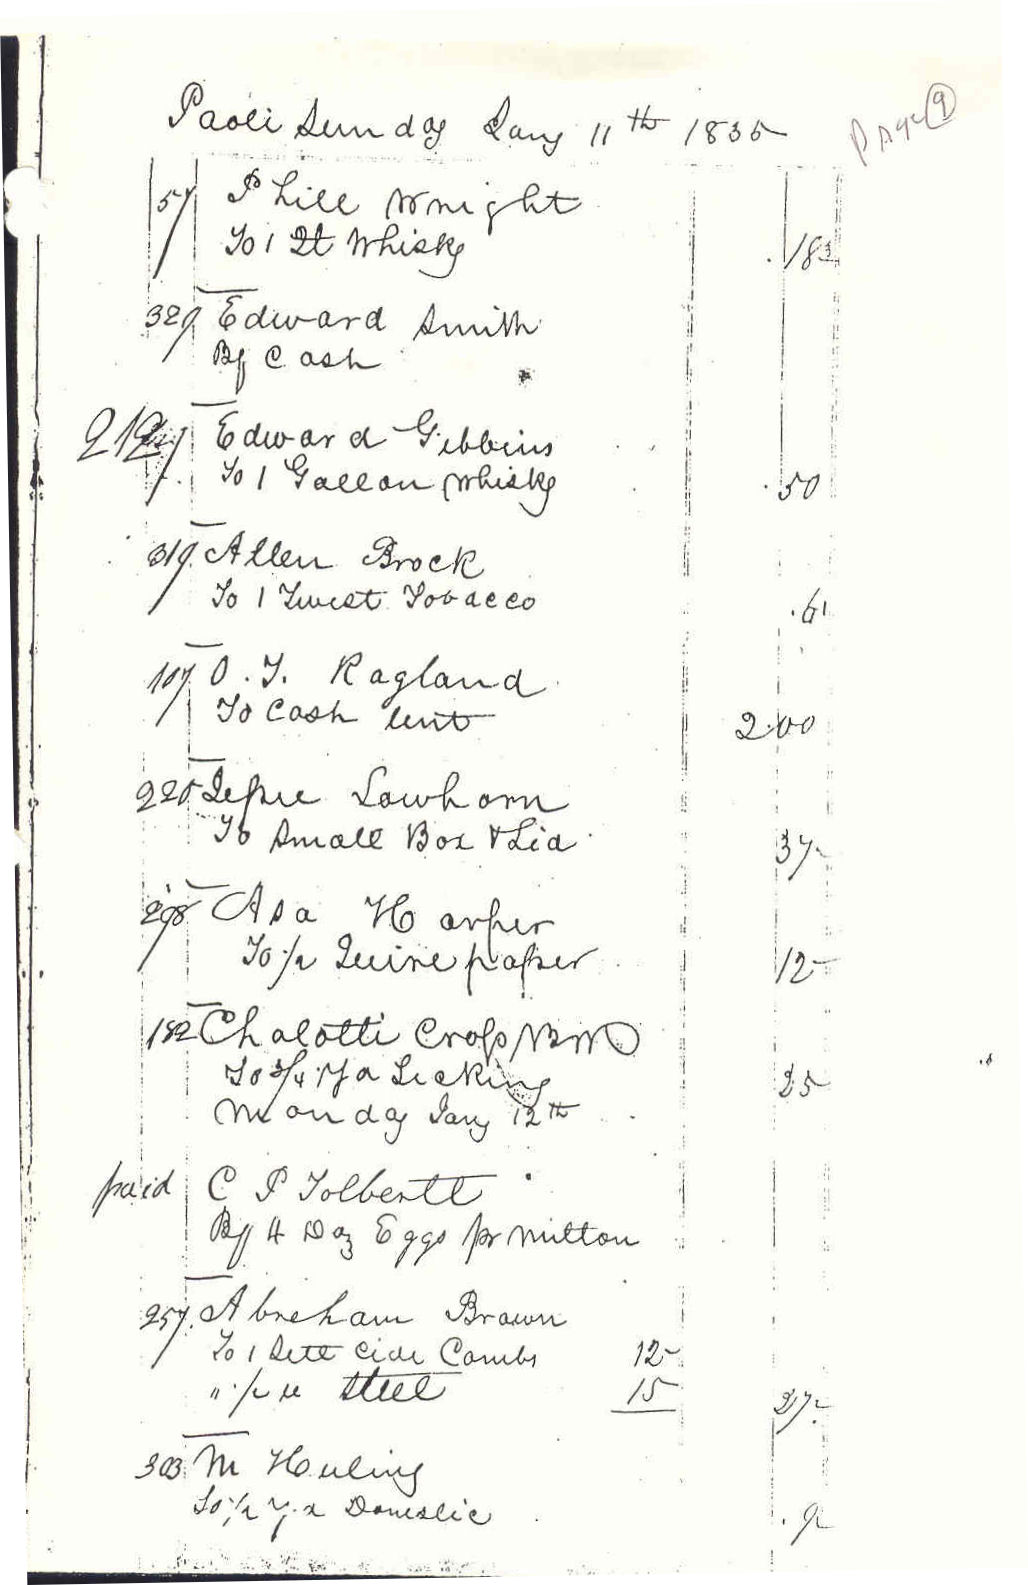 Paoli Sunday Jany 11th 1835
Page 9
57 Phill Wright
To 1 Qt Whisky .18¾
329 Edward Smith
By Cash
212 Edward Gibbins
To 1 Gallon Whisky .50
319 Allen Brock
To 1 Twist Tobacco .6¼
107 O. T. Ragland
To Cash lent 2.00
225 Jesse Lawhorn
To Small Box & Lid 37-
298 Asa Harper
To ½ Quire paper 12-
182 Chalotti Cross
To ¾ yd Ticking 25
Monday Jany 12th
paid C P Tolbertt
By 4 Doz Eggs pr Mitton
257 Abreham Brown
To 1 Sett Cide Combs 12-
" ½ lb Steel 15 27-
303 M Huling
To ½ yd Domestic .9